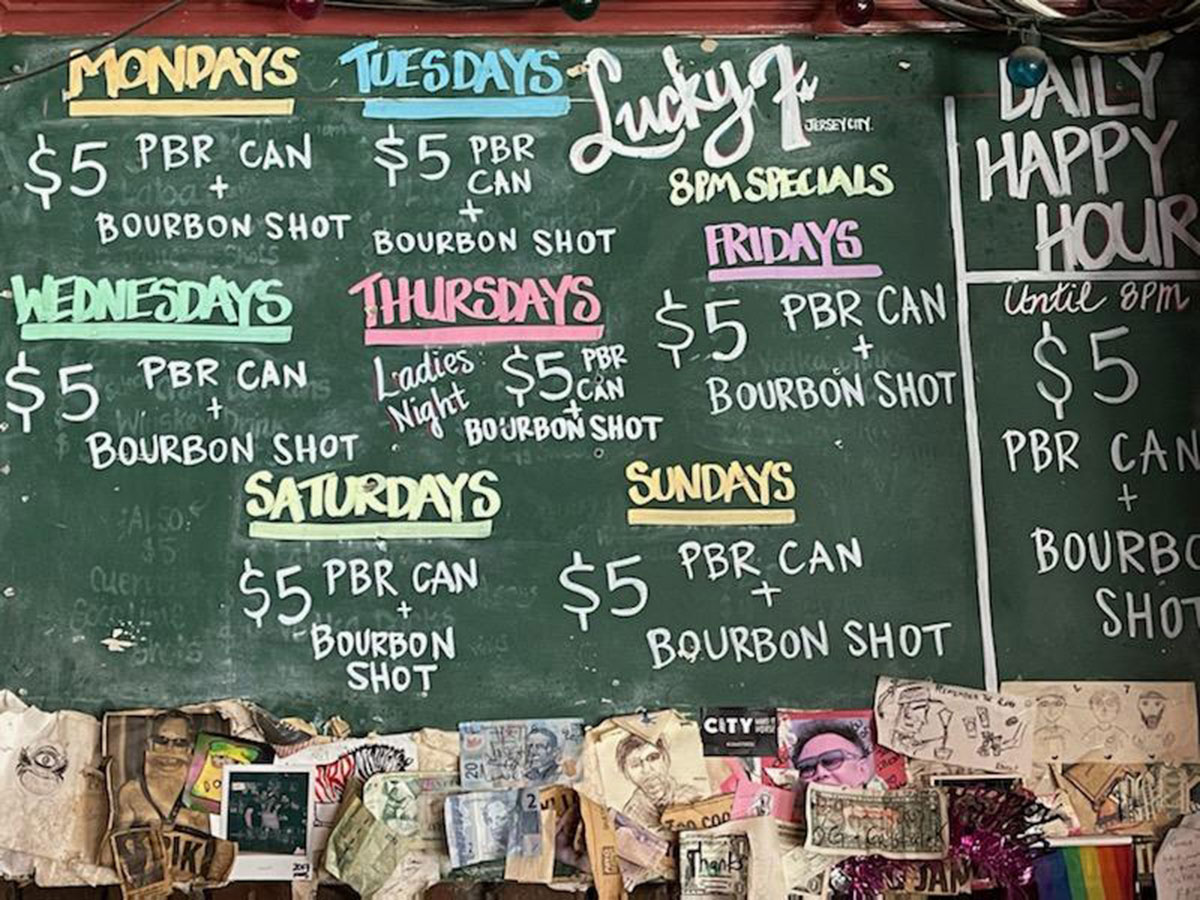 MONDAYS
$5 PBR CAN
+
BOURBON SHOT
TUESDAYS
$5 PBR
CAN
+
BOURBON SHOT
Lucky 7s
JERSEY CITY.
8PM SPECIALS
FRIDAYS
$5 PBR CAN
+
BOURBON SHOT
WEDNESDAYS
$5 PBR CAN
+
BOURBON SHOT
THURSDAYS
Ladies
Night
$5 PBR
CAN
+
BOURBON SHOT
SATURDAYS
$5 PBR CAN
+
BOURBON
SHOT
SUNDAYS
$5 PBR CAN
+
BOURBON SHOT
DAILY
HAPPY
HOUR
Until 8PM
$5
PBR CAN
+
BOURBO
SHOT
ALSO:
$5
CITY
20
2
Thanks
JAN